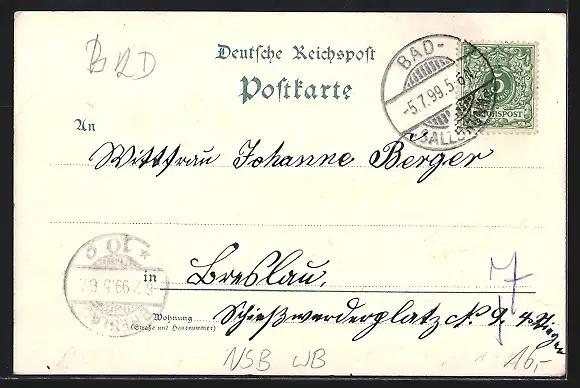 BRD
Deutsche Reichspost
Postkarte
BAD-
-5.7.99.5-6N.
REICHSPOST
An
Wittfrau Johanne Berger
in Breslau.
Wohnung
(Straße und Hausnummer)
Schießwerderplatz N. 9. 4 Stiegen
NSB WB
16,-